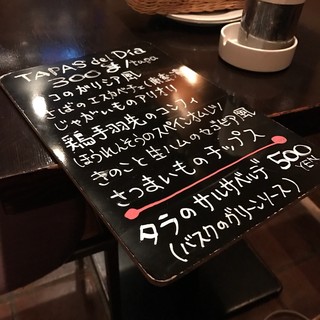 TAPAS del Día
300 ¥/tapa
コのガリシア風
さばのエスカベチェ
じゃがいものアリオリ
鶏手羽先のコンフィ
ほうれんそうのスペインオムレツ
きのこと生ハムのセゴビア風
さつまいものチップス
タラのサルサベルデ 500 YEN
(バスクのグリーンソース)